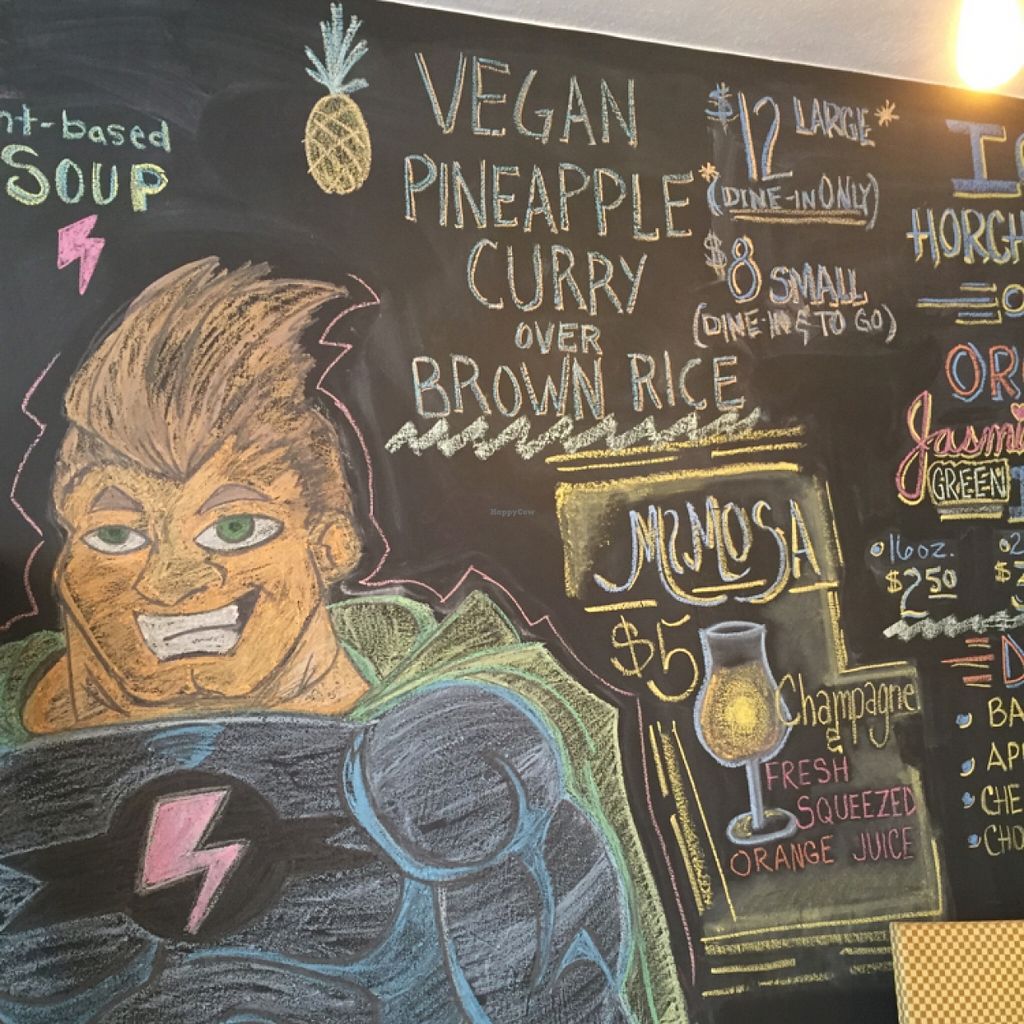 nt-based
SOUP
VEGAN
PINEAPPLE*
CURRY
OVER
BROWN RICE
$12 LARGE*
(DINE-IN ONLY)
$8 SMALL
(DINE-IN & TO GO)
MIMOSA
$5
Champagne
&
FRESH
SQUEEZED
ORANGE JUICE
HORCH
OR
Jasmi
GREEN
16oz.
$2.50
BA
AP
CHE
CHO
HappyCow